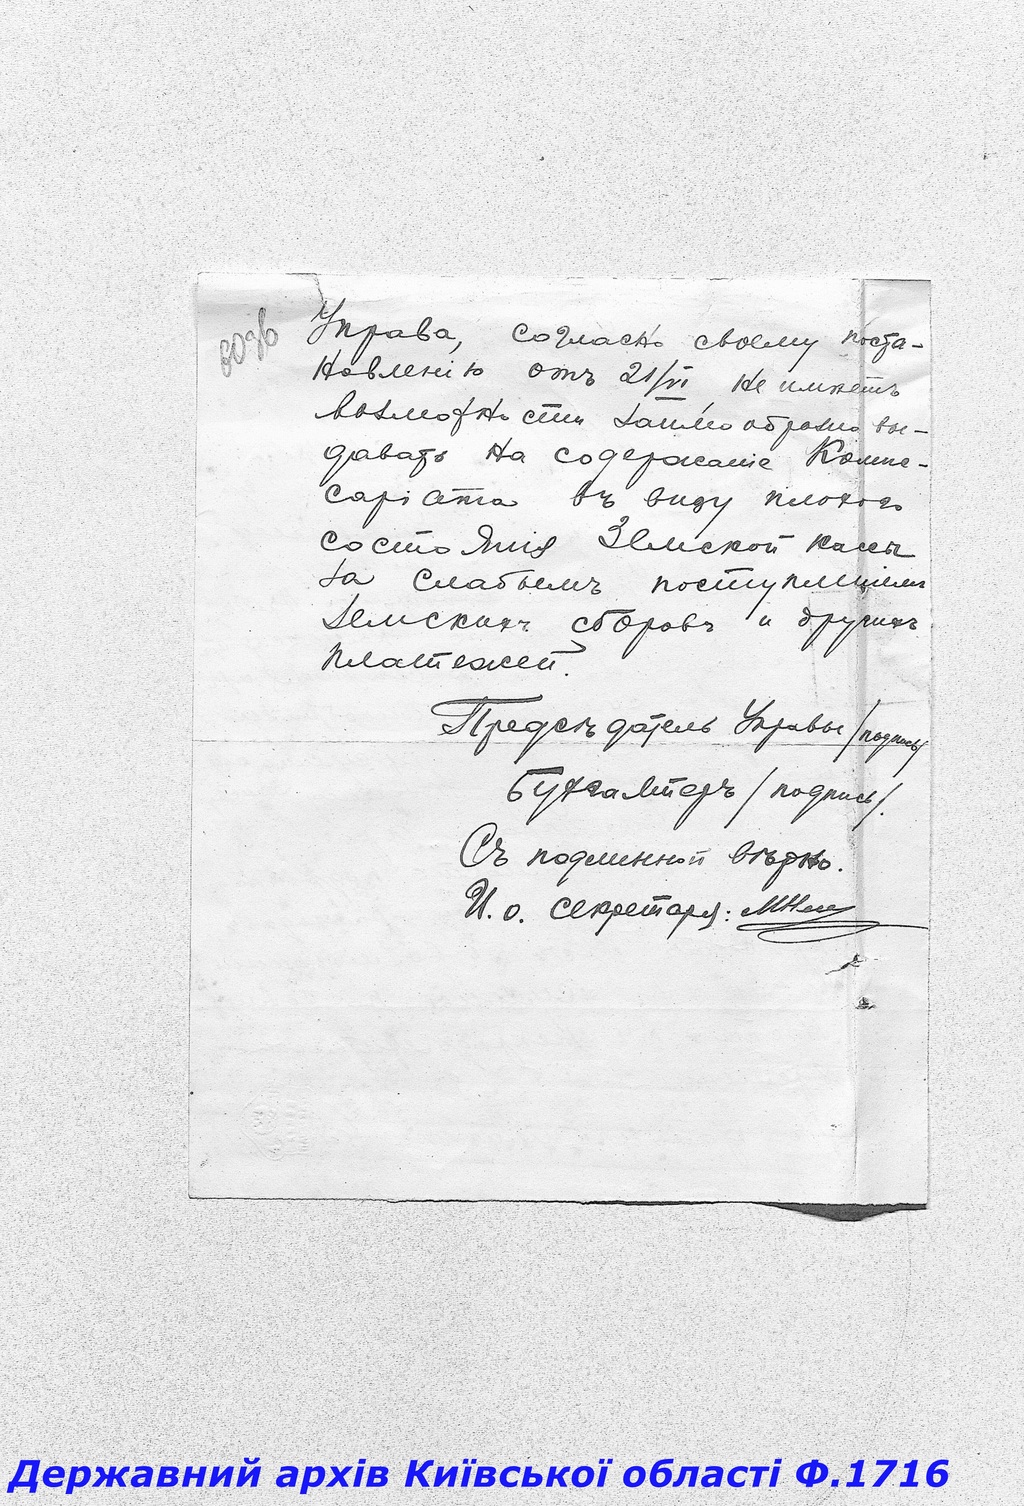 Управа, согласно своему поста-
новленію отъ 21/VI не имѣетъ
возможности заимообразно вы-
давать на содержаніе Комис-
саріата въ виду плохого
состоянія Земской кассы
за слабымъ поступленіемъ
земскихъ сборовъ и другихъ
платежей.
Предсѣдатель Управы /подпись/
Бухгалтеръ /подпись/.
Съ подлинной вѣрно.
И. о. секретаря:
Державний архів Київської області Ф.1716